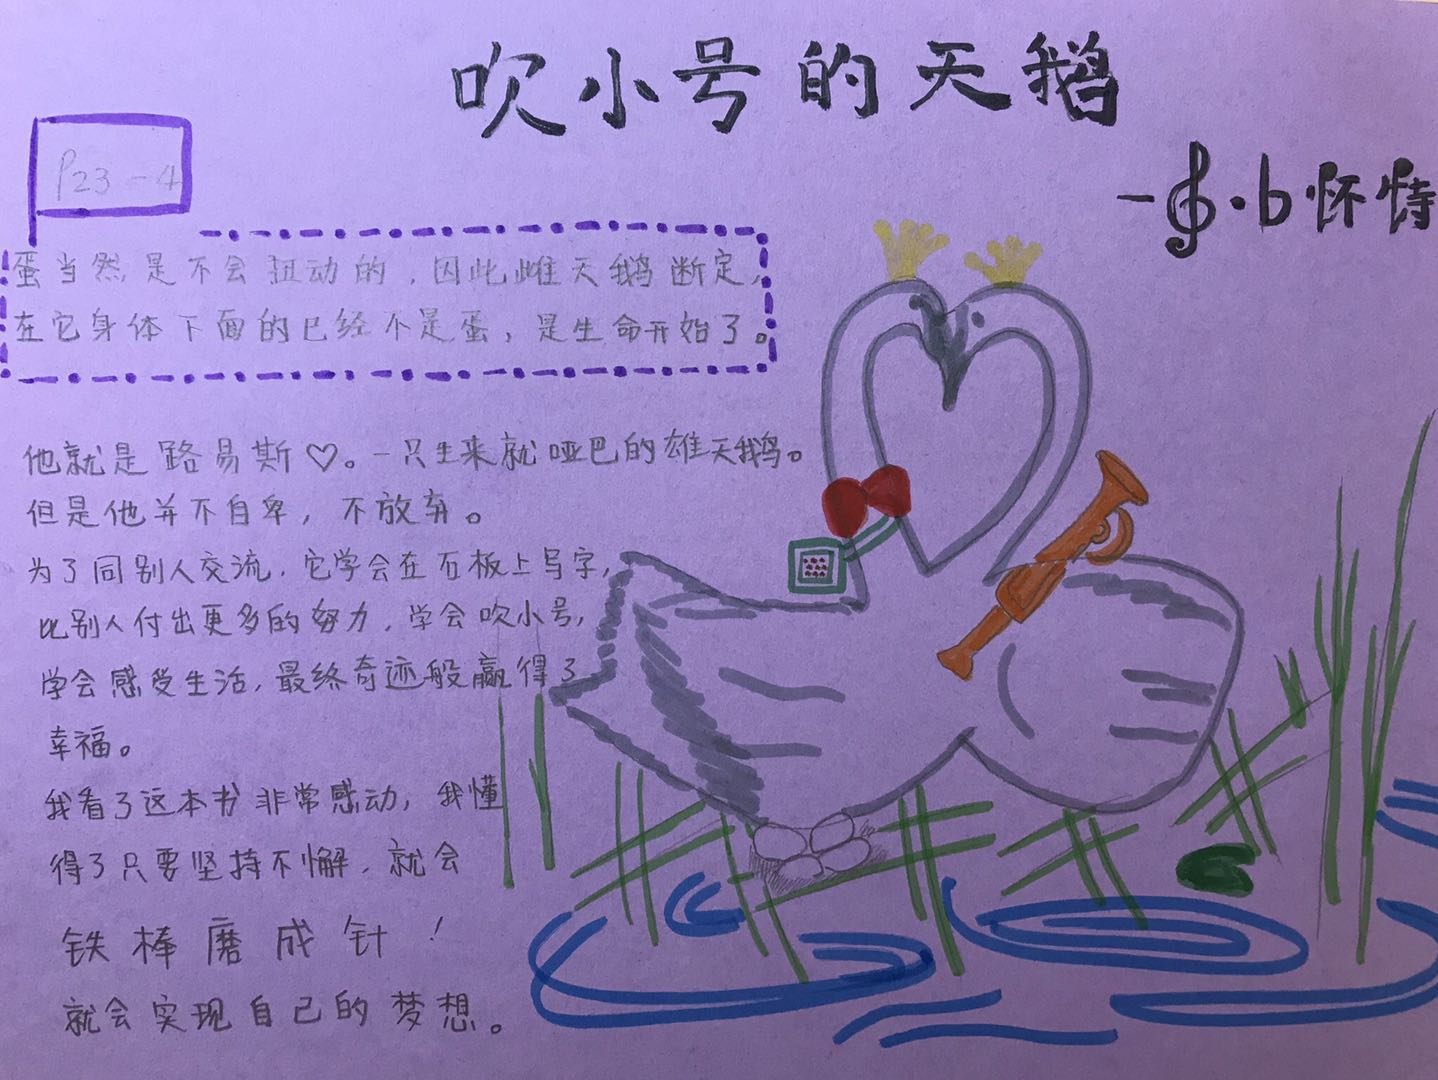 吹小号的天鹅
—𝄞·b怀特
P23-4
蛋当然是不会扭动的，因此雌天鹅断定，
在它身体下面的已经不是蛋，是生命开始了。
他就是路易斯♡。一只生来就哑巴的雄天鹅。
但是他并不自卑，不放弃。
为了同别人交流，它学会在石板上写字，
比别人付出更多的努力，学会吹小号，
学会感受生活，最终奇迹般赢得了
幸福。
我看了这本书非常感动，我懂
得了只要坚持不懈，就会
铁棒磨成针！
就会实现自己的梦想。